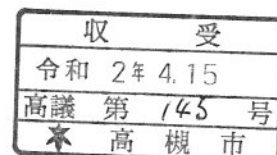 収 受
令和 2年 4.15
高議 第 145 号
高 槻 市